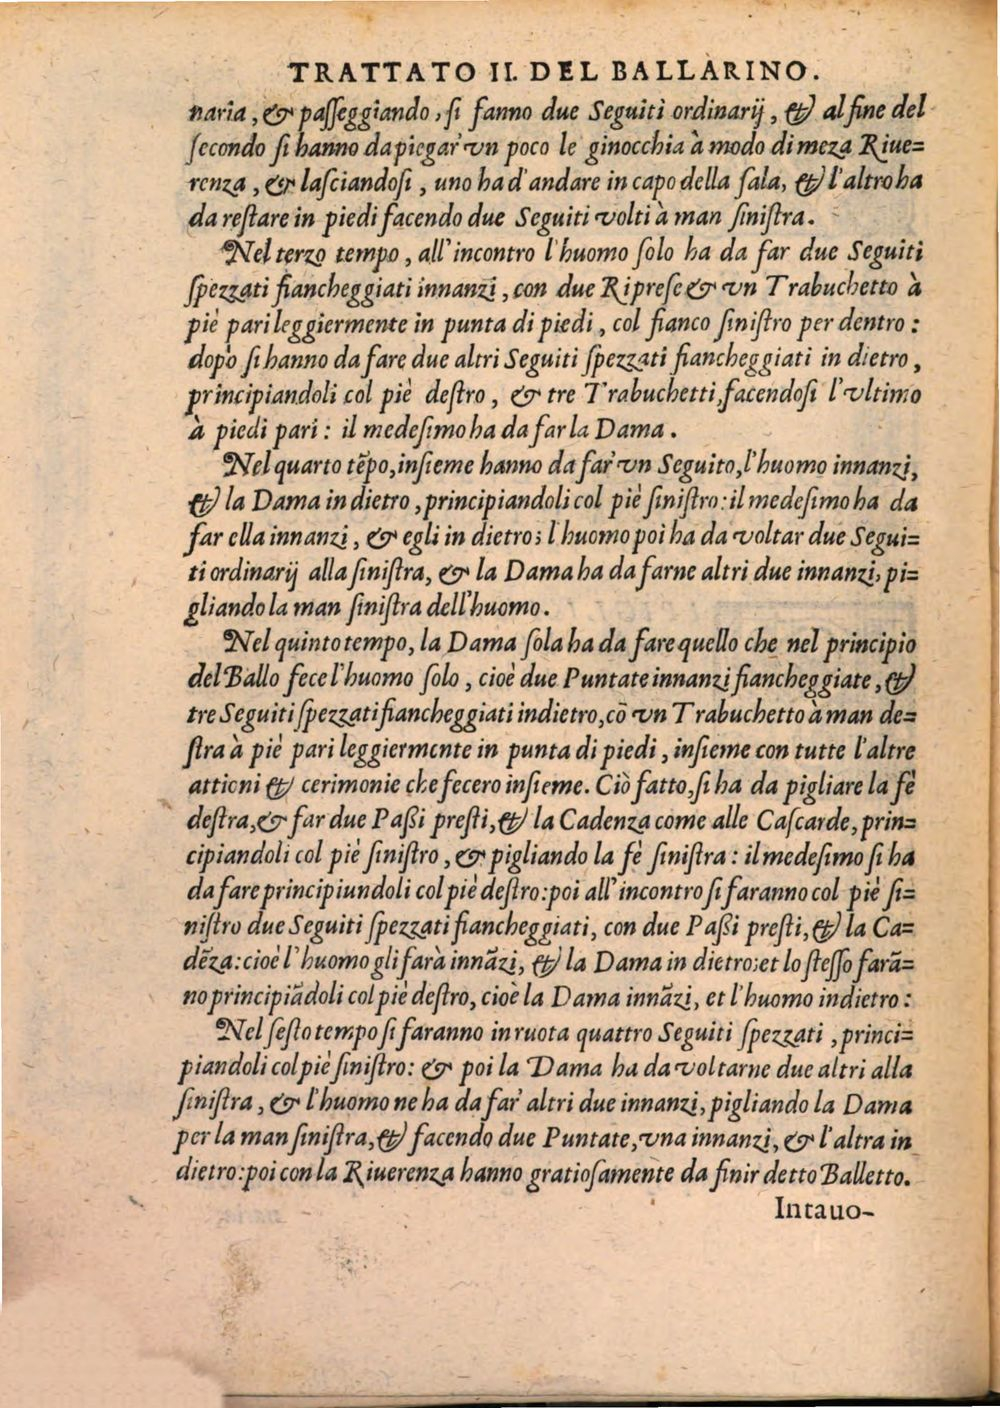 TRATTATO II. DEL BALLARINO.
naria, & paſſeggiando, ſi fanno due Seguiti ordinarij, & al fine del
ſecondo ſi hanno da piegar' vn poco le ginocchia à modo di meza Riue=
renza, & laſciandoſi, uno ha d'andare in capo della ſala, & l'altro ha
da reſtare in piedi facendo due Seguiti volti à man ſiniſtra.
Nel terzo tempo, all'incontro l'huomo ſolo ha da far due Seguiti
ſpezzati fiancheggiati innanzi, con due Ripreſe & vn Trabuchetto à
piè pari leggiermente in punta di piedi, col fianco ſiniſtro per dentro:
dopò ſi hanno da fare due altri Seguiti ſpezzati fiancheggiati in dietro,
principiandoli col piè deſtro, & tre Trabuchetti, facendoſi l'vltimo
à piedi pari: il medeſimo ha da far la Dama.
Nel quarto tẽpo, inſieme hanno da far' vn Seguito, l'huomo innanzi,
& la Dama in dietro, principiandoli col piè ſiniſtro: il medeſimo ha da
far ella innanzi, & egli in dietro; l'huomo poi ha da voltar due Segui=
ti ordinarij alla ſiniſtra, & la Dama ha da farne altri due innanzi, pi=
gliando la man ſiniſtra dell'huomo.
Nel quinto tempo, la Dama ſola ha da fare quello che nel principio
del Ballo fece l'huomo ſolo, cioè due Puntate innanzi fiancheggiate, &
tre Seguiti ſpezzati fiancheggiati indietro, cõ vn Trabuchetto à man de=
ſtra à piè pari leggiermente in punta di piedi, inſieme con tutte l'altre
attioni & cerimonie che fecero inſieme. Ciò fatto, ſi ha da pigliare la fè
deſtra, & far due Paßi preſti, & la Cadenza come alle Caſcarde, prin=
cipiandoli col piè ſiniſtro, & pigliando la fè ſiniſtra: il medeſimo ſi ha
da fare principiundoli col piè deſtro: poi all'incontro ſi faranno col piè ſi=
niſtro due Seguiti ſpezzati fiancheggiati, con due Paßi preſti, & la Ca=
dẽza: cioè l'huomo gli farà innãzi, & la Dama in dietro; et lo ſteſſo farã=
no principiãdoli col piè deſtro, cioè la Dama innãzi, et l'huomo indietro:
Nel ſeſto tempo ſi faranno in ruota quattro Seguiti ſpezzati, princi=
piandoli col piè ſiniſtro: & poi la Dama ha da voltarne due altri alla
ſiniſtra, & l'huomo ne ha da far' altri due innanzi, pigliando la Dama
per la man ſiniſtra, & facendo due Puntate, vna innanzi, & l'altra in
dietro: poi con la Riuerenza hanno gratioſamente da finir detto Balletto.
Intauo-